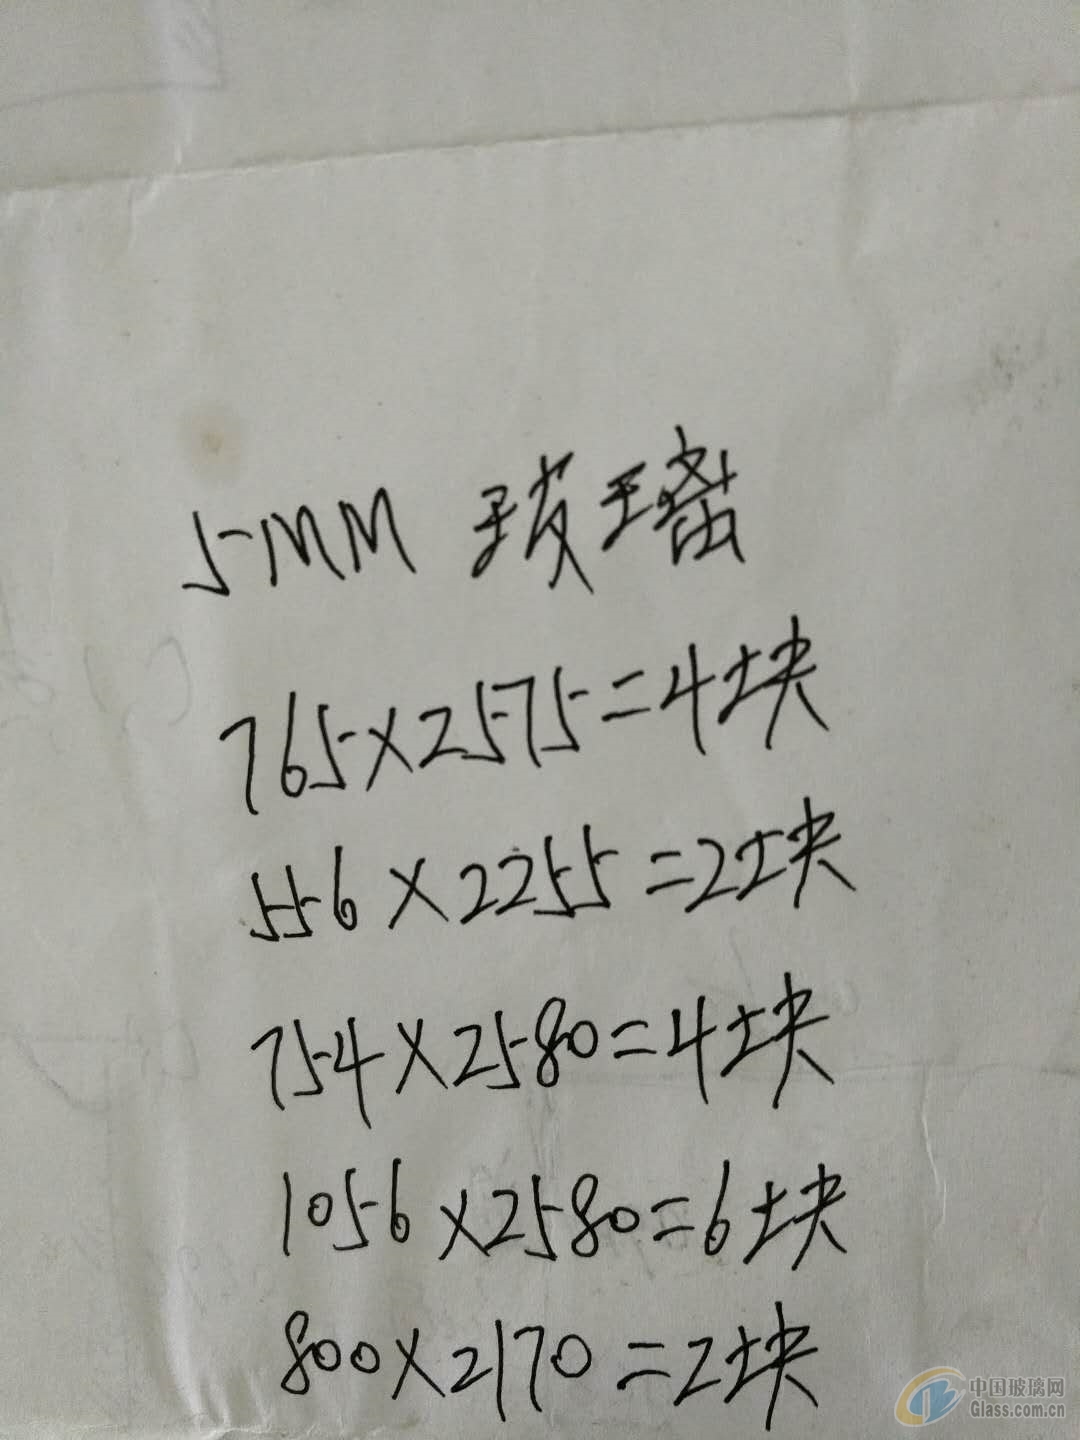 5MM 玻璃
765×2575=4块
556×2255=2块
754×2580=4块
1056×2580=6块
800×2170=2块
中国玻璃网
Glass.com.cn